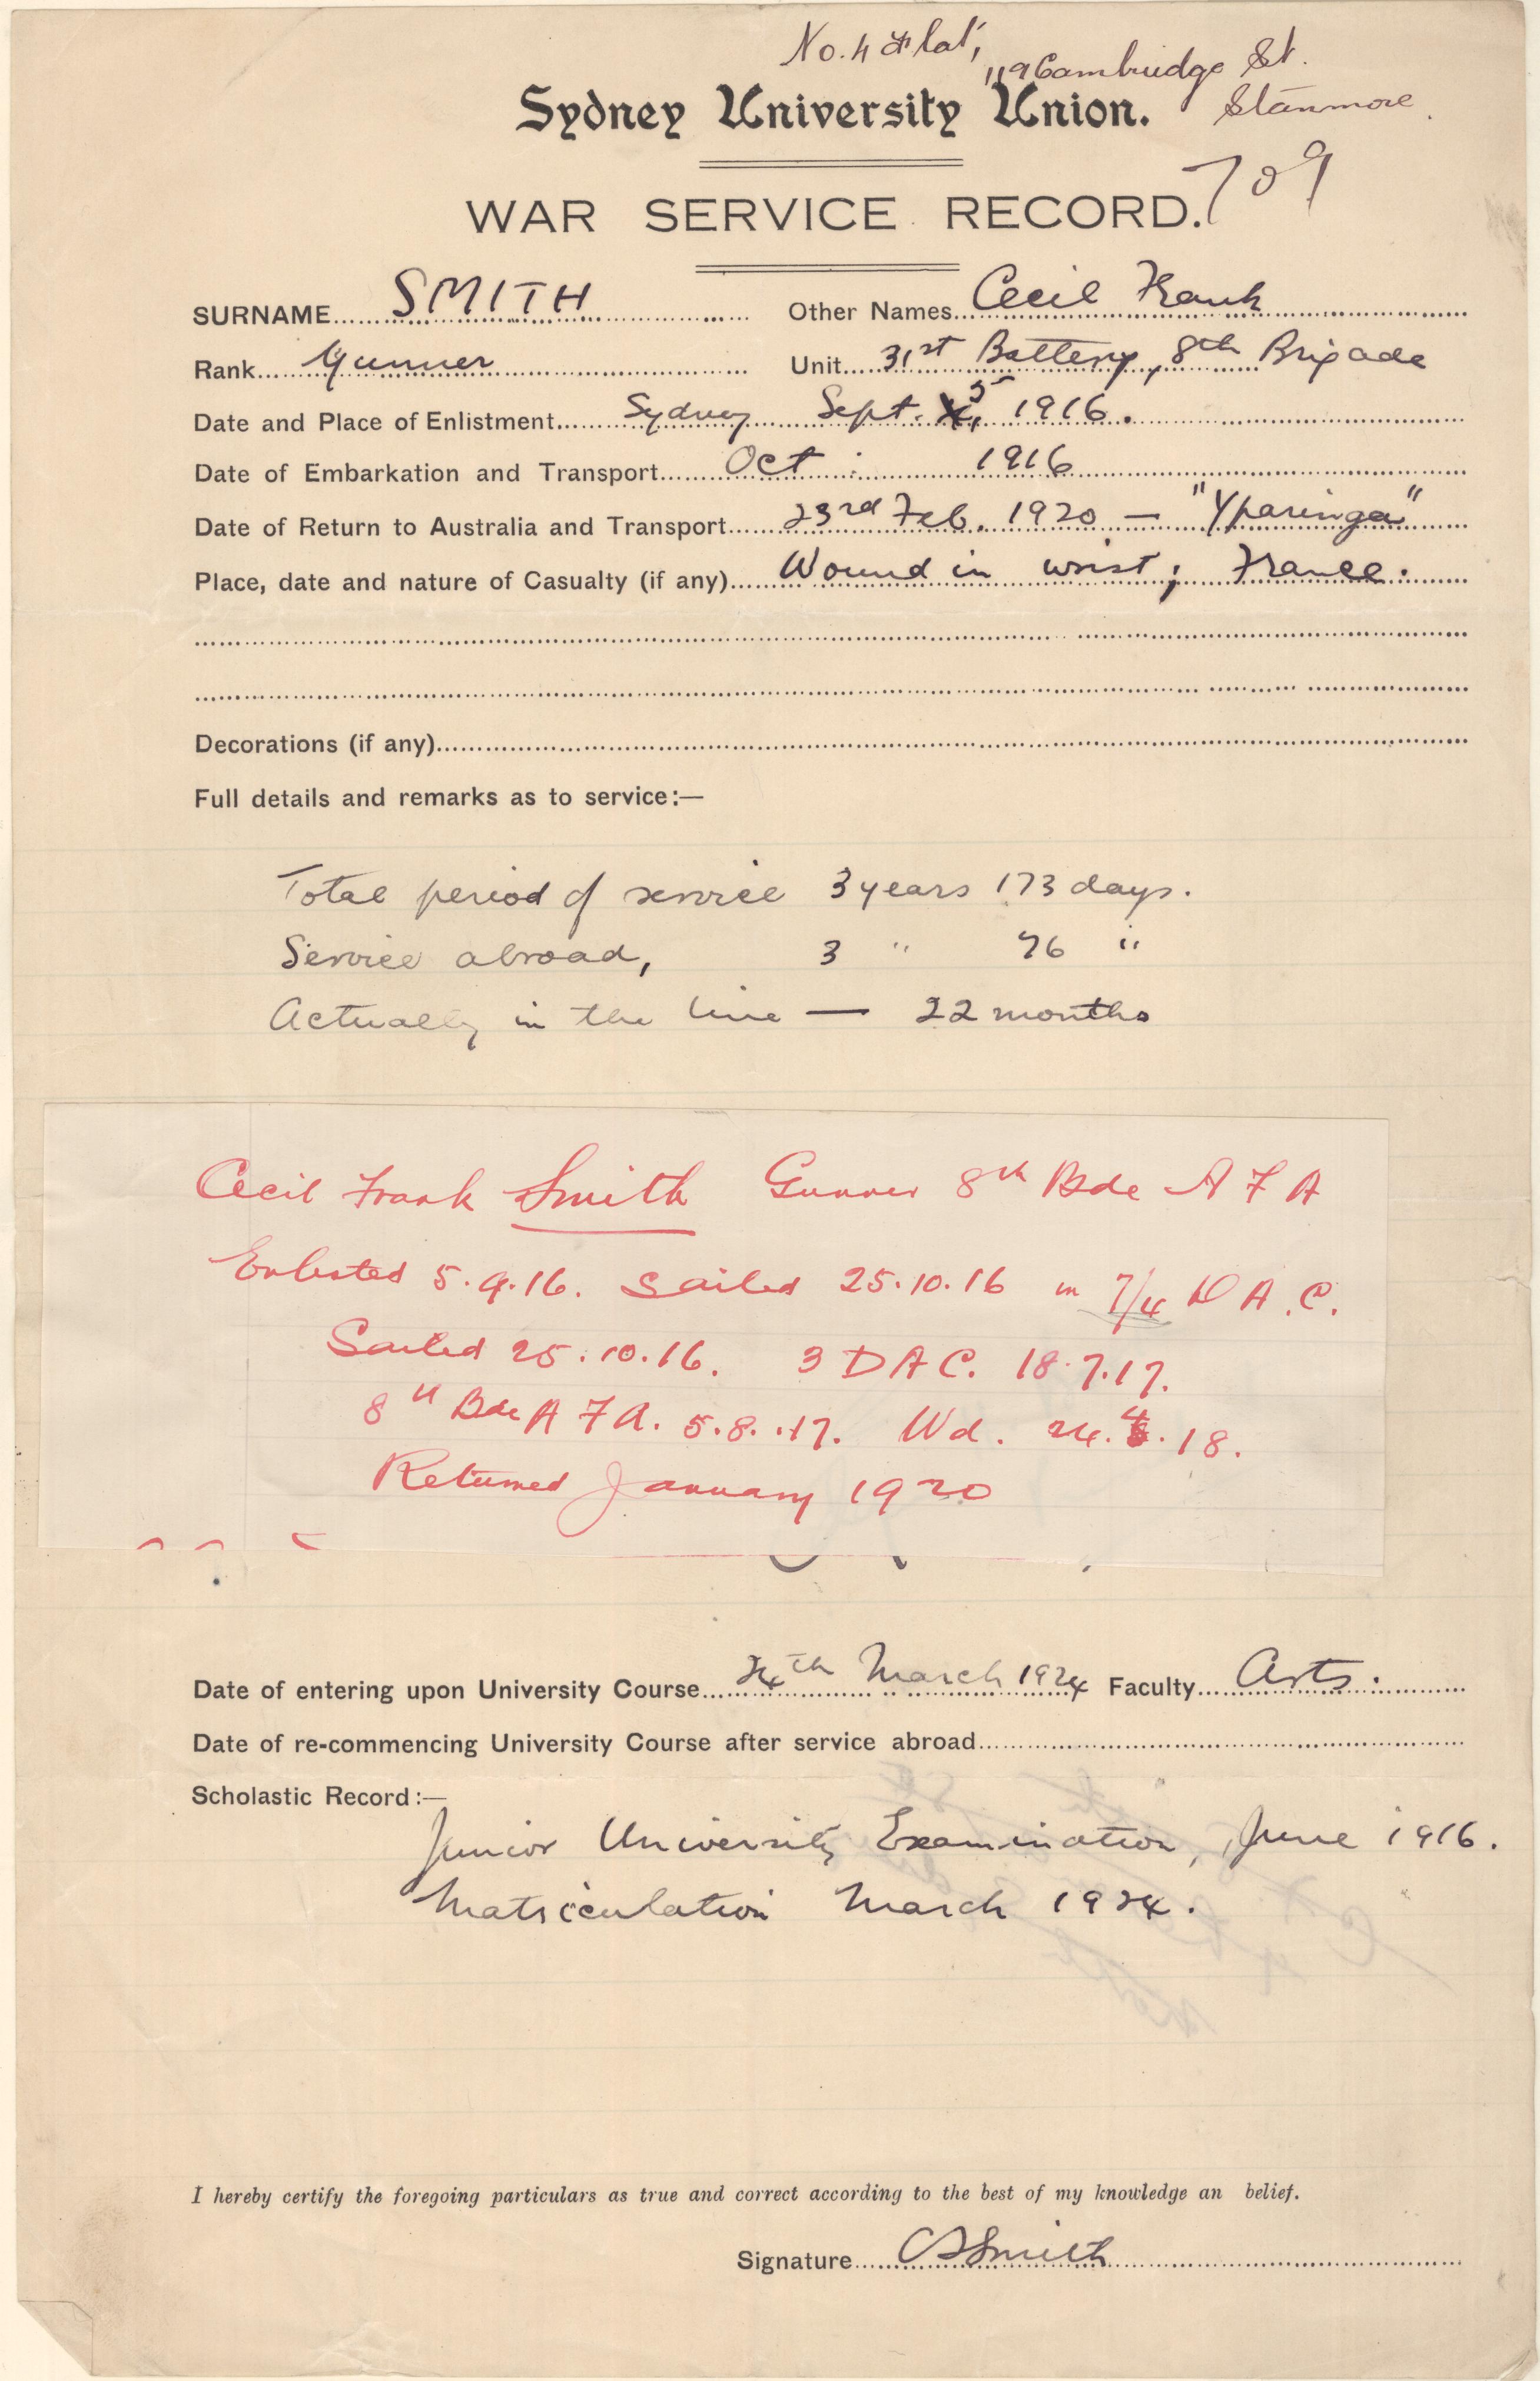 No. 4 Flat,
119 Cambridge St.
Stanmore
Sydney University Union.
709
WAR SERVICE RECORD.
SURNAME SMITH Other Names Cecil Frank
Rank Gunner Unit 31st Battery, 8th Brigade
Date and Place of Enlistment Sydney Sept. 5, 1916.
Date of Embarkation and Transport Oct : 1916
Date of Return to Australia and Transport 23rd Feb. 1920 — "Yparinga"
Place, date and nature of Casualty (if any) Wound in wrist; France.
Decorations (if any)
Full details and remarks as to service:—
Total period of service 3 years 173 days.
Service abroad, 3 " 76 "
Actually in the line — 22 months
Cecil Frank Smith Gunner 8th Bde A F A
Enlisted 5.9.16. Sailed 25.10.16 in 7/4 D A.C.
Sailed 25.10.16. 3 D A C. 18.7.17.
8th Bde A F A. 5.8.17. Wd. 24.4.18.
Returned January 1920
Date of entering upon University Course 24th March 1924 Faculty Arts.
Date of re-commencing University Course after service abroad
Scholastic Record:—
Junior University Examination, June 1916.
Matriculation March 1924.
I hereby certify the foregoing particulars as true and correct according to the best of my knowledge an belief.
Signature CFSmith